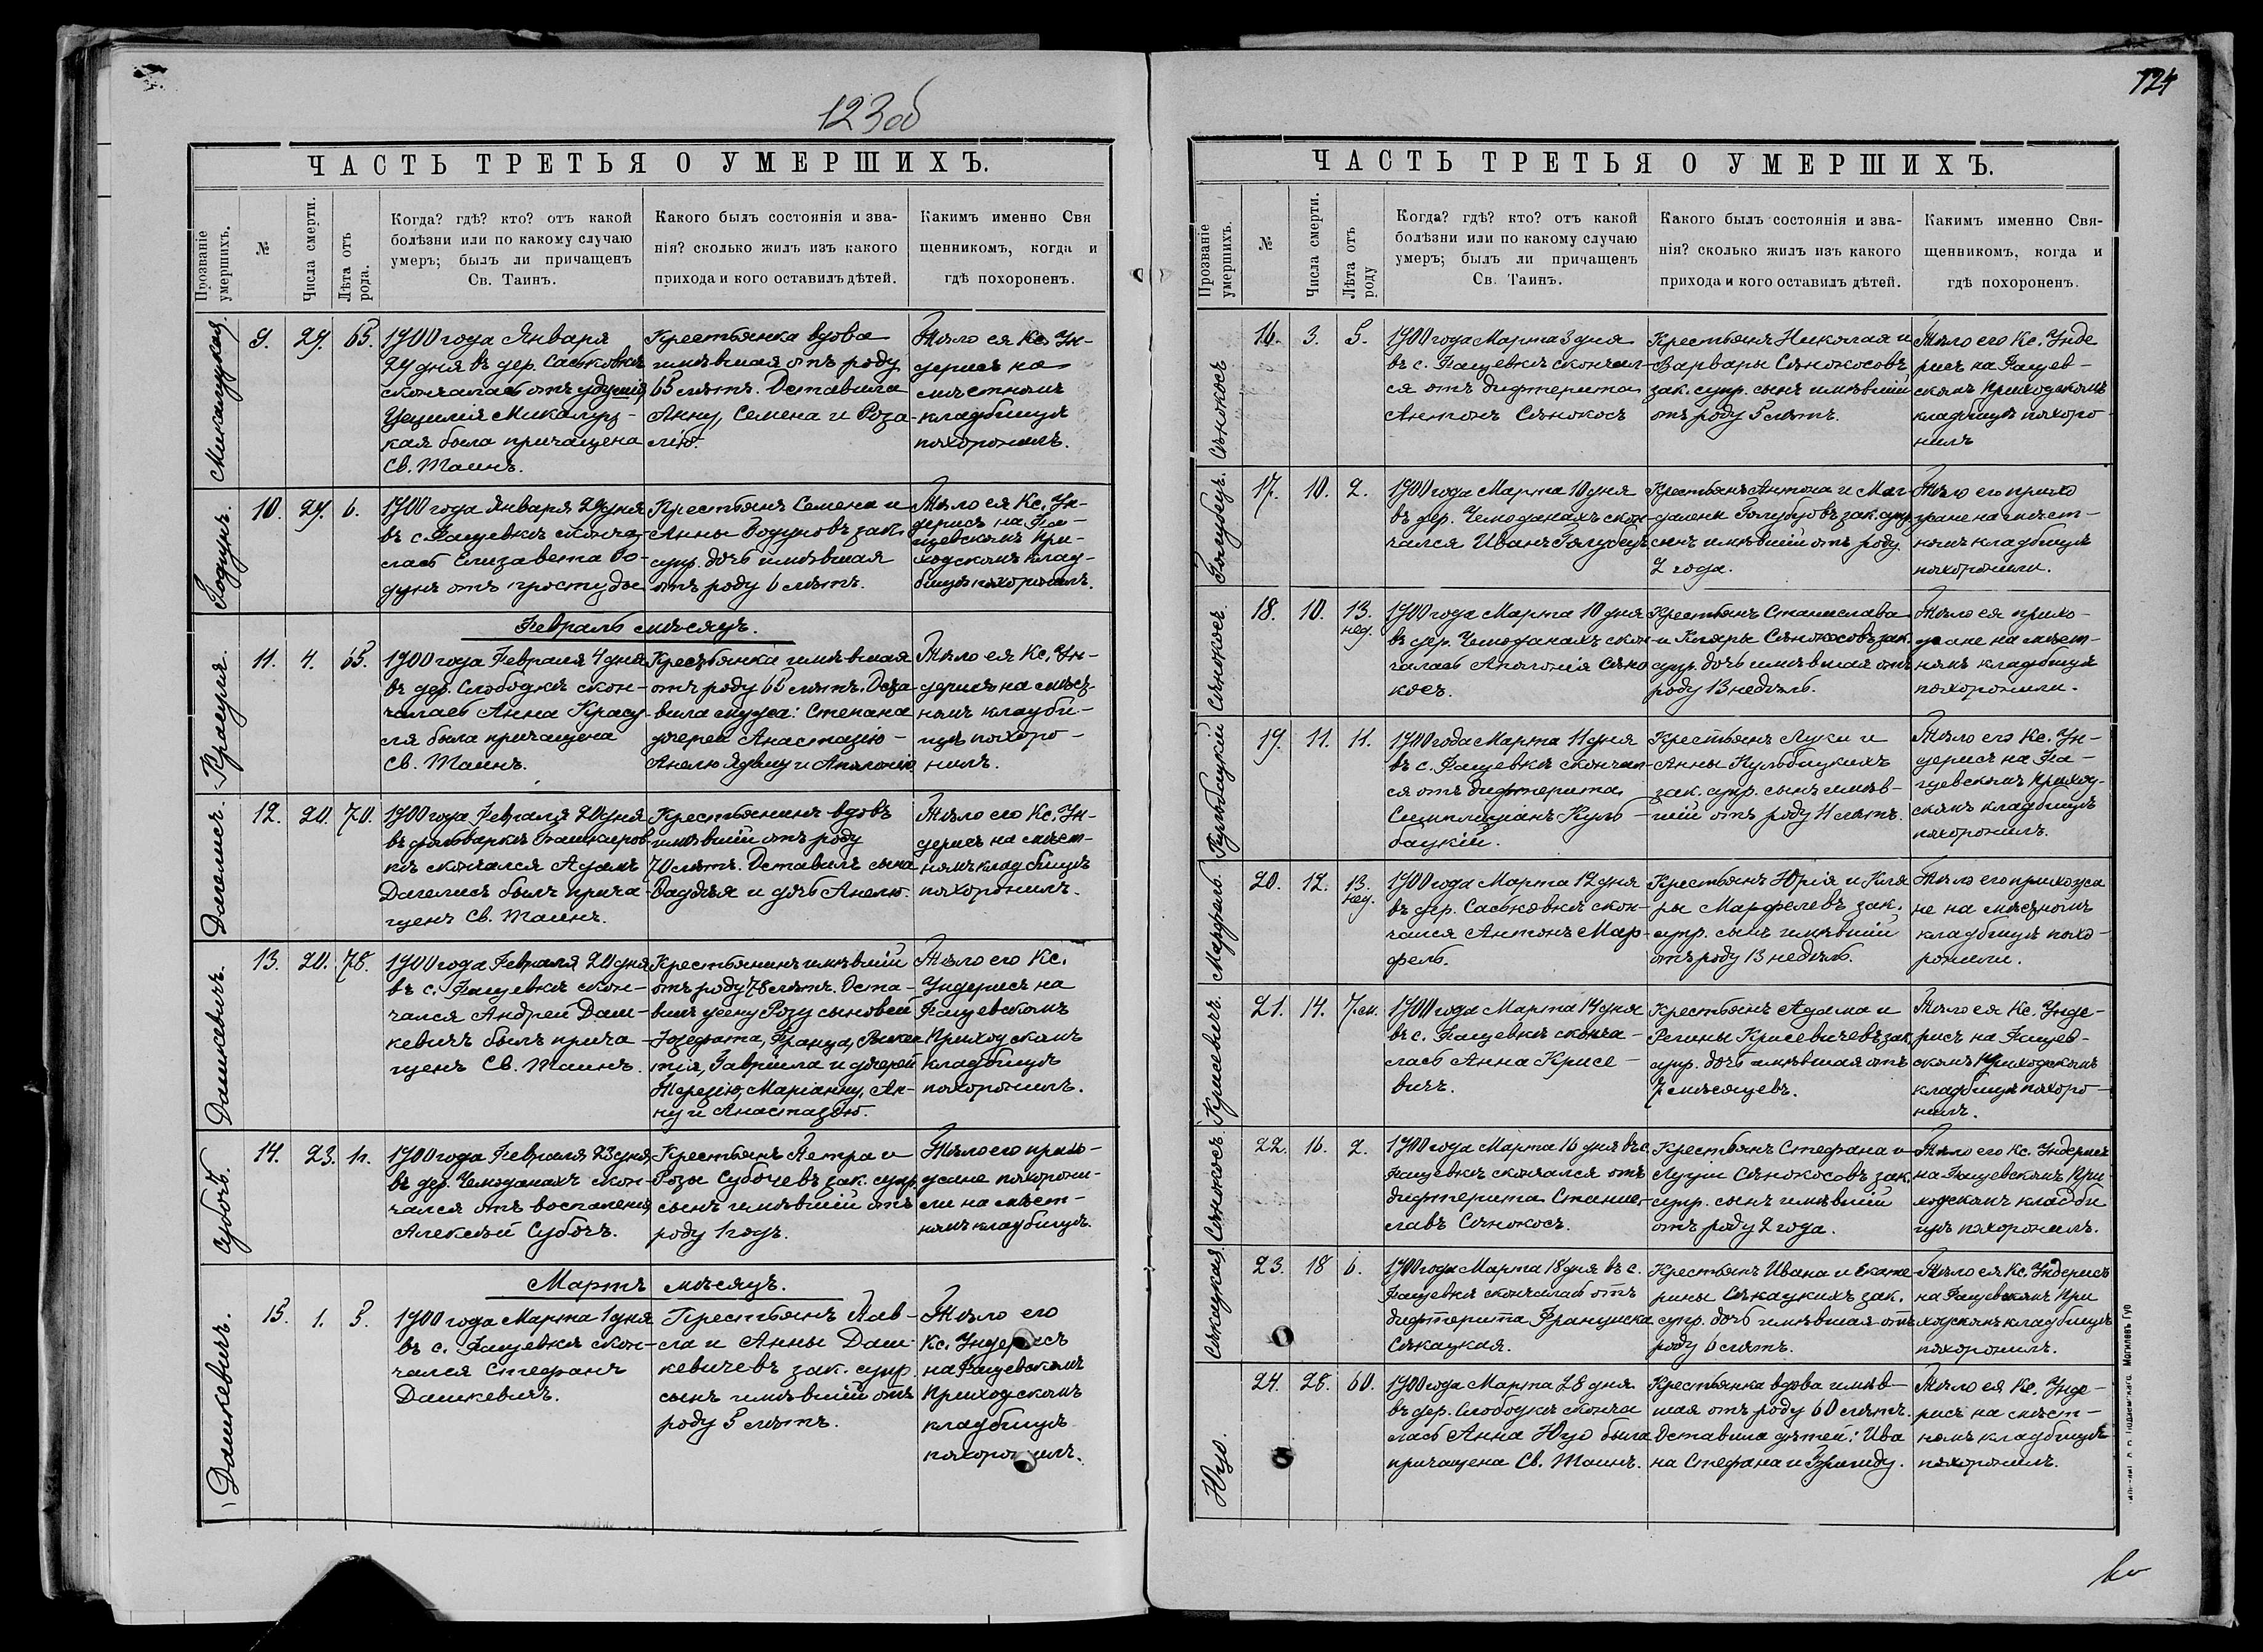 123об
ЧАСТЬ ТРЕТЬЯ О УМЕРШИХЪ.
Прозваніе умершихъ.
№
Числа смерти.
Лѣта отъ рода.
Когда? гдѣ? кто? отъ какой
болѣзни или по какому случаю
умеръ; былъ ли причащенъ
Св. Таинъ.
Какого былъ состоянія и зва-
нія? сколько жилъ изъ какого
прихода и кого оставилъ дѣтей.
Какимъ именно Свя
щенникомъ, когда и
гдѣ похороненъ.
Микалуцкая.
9.
27.
65.
1900 года Января
27 дня въ дер. Саськовкѣ
скончалась отъ удушія
Цецилія Микалуц-
кая была причащена
Св. Таинъ.
Крестьянка вдова
имѣвшая отъ роду
65 лѣтъ. Оставила
Анну, Семена и Роза-
лію.
Тѣло ея Кс. Ун-
дерисъ на
мѣстномъ
кладбищѣ
похоронилъ.
Годунъ.
10.
29.
6.
1900 года Января 29 дня
въ с. Фащевкѣ сконча-
лась Елизавета Го-
дунъ отъ простуды
Крестьянъ Семена и
Анны Годуновъ зак.
супр. дочь имѣвшая
отъ роду 6 лѣтъ.
Тѣло ея Кс. Ун-
дерисъ на Фа-
щевскомъ При-
ходскомъ клад-
бищѣ похоронилъ.
Февраль мѣсяцъ.
Красуля.
11.
4.
65.
1900 года Февраля 4 дня
въ дер. Слободкѣ скон-
чалась Анна Красу-
ля была причащена
Св. Таинъ.
Крестьянка имѣвшая
отъ роду 65 лѣтъ. Оста-
вила мужа: Степана
дочерей Анастазію
Анелю Ядвигу и Аполонію
Тѣло ея Кс. Ун-
дерисъ на мѣст-
номъ кладби-
щѣ похоро-
нилъ.
Дагелисъ.
12.
20.
70.
1900 года Февраля 20 дня
въ фольваркѣ Башкиров-
кѣ скончался Адамъ
Дагелисъ былъ прича-
щенъ Св. Таинъ.
Крестьянинъ вдовъ
имѣвшій отъ роду
70 лѣтъ. Оставилъ сына
Фаддея и дочь Анелю.
Тѣло его Кс. Ун-
дерисъ на мѣст-
номъ кладбищѣ
похоронилъ.
Дашкевичъ.
13.
20.
78.
1900 года Февраля 20 дня
въ с. Фащевкѣ скон-
чался Андрей Даш-
кевичъ былъ прича-
щенъ Св. Таинъ.
Крестьянинъ имѣвшій
отъ роду 78 лѣтъ. Оста-
вилъ жену Розу сыновей
Іозефата, Франца, Викен-
тія, Гавріила и дочерей
Терезію, Маріанну, Ан-
ну и Анастазію.
Тѣло его Кс.
Ундерисъ на
Фащевскомъ
Приходскомъ
кладбищѣ
похоронилъ.
Субочъ.
14.
23.
1г.
1900 года Февраля 23 дня
въ дер. Чемоданахъ скон-
чался отъ воспаленія
Алексѣй Субочъ.
Крестьянъ Петра и
Розы Субочевъ зак. супр.
сынъ имѣвшій отъ
роду 1 годъ.
Тѣло его прихо-
жане похорони-
ли на мѣст-
номъ кладбищѣ.
Мартъ мѣсяцъ.
Дашкевичъ.
15.
1.
5.
1900 года Марта 1 дня
въ с. Фащевкѣ скон-
чался Стефанъ
Дашкевичъ.
Крестьянъ Пав-
ла и Анны Даш-
кевичевъ зак. супр.
сынъ имѣвшій отъ
роду 5 лѣтъ.
Тѣло его
Кс. Ундерисъ
на Фащевскомъ
Приходскомъ
кладбищѣ
похоронилъ.
124
ЧАСТЬ ТРЕТЬЯ О УМЕРШИХЪ.
Прозваніе умершихъ.
№
Числа смерти.
Лѣта отъ роду
Когда? гдѣ? кто? отъ какой
болѣзни или по какому случаю
умеръ; былъ ли причащенъ
Св. Таинъ.
Какого былъ состоянія и зва-
нія? сколько жилъ изъ какого
прихода и кого оставилъ дѣтей.
Какимъ именно Свя-
щенникомъ, когда и
гдѣ похороненъ.
Сѣнокосъ
16.
3.
5.
1900 года Марта 3 дня
въ с. Фащевкѣ скончал-
ся отъ дифтерита
Антонъ Сѣнокосъ
Крестьянъ Николая и
Варвары Сѣнокосовъ
зак. супр. сынъ имѣвшій
отъ роду 5 лѣтъ.
Тѣло его Кс. Унде
рисъ на Фащев-
скомъ Приходскомъ
кладбищѣ похоро
нилъ
Голубецъ.
17.
10.
2.
1900 года Марта 10 дня
въ дер. Чемоданахъ скон-
чался Иванъ Голубецъ
Крестьянъ Антона и Маг-
далены Голубцовъ зак. супр
сынъ имѣвшій отъ роду
2 года.
Тѣло его прихо
жане на мѣст-
номъ кладбищѣ
похоронили.
Сѣнокосъ.
18.
10.
13. нед.
1900 года Марта 10 дня
въ дер. Чемоданахъ скон
чалась Аполонія Сѣно
косъ.
Крестьянъ Станислава
и Клары Сѣнокосовъ зак.
супр. дочь имѣвшая отъ
роду 13 недѣль.
Тѣло ея прихо-
жане на мѣст-
номъ кладбищѣ
похоронили.
Кульбацкій
19.
11.
11.
1900 года Марта 11 дня
въ с. Фащевкѣ скончал-
ся отъ дифтерита
Симплиціанъ Куль-
бацкій.
Крестьянъ Луки и
Анны Кульбацкихъ
зак. супр. сынъ имѣв-
шій отъ роду 11 лѣтъ.
Тѣло его Кс. Ун-
дерисъ на Фа-
щевскомъ Приход-
скомъ кладбищѣ
похоронилъ.
Марфель.
20.
12.
13. нед.
1900 года Марта 12 дня
въ дер. Саськовкѣ скон-
чался Антонъ Мар-
фель.
Крестьянъ Юрія и Кла
ры Марфелевъ зак.
супр. сынъ имѣвшій
отъ роду 13 недѣль.
Тѣло его прихожа
не на мѣстномъ
кладбищѣ похо-
ронили.
Крисевичъ.
21.
14.
7.м.
1900 года Марта 14 дня
въ с. Фащевкѣ сконча-
лась Анна Крисе-
вичъ.
Крестьянъ Адама и
Регины Крисевичевъ зак.
супр. дочь имѣвшая отъ
7 мѣсяцевъ.
Тѣло ея Кс. Унде-
рисъ на Фащев-
скомъ Приходскомъ
кладбищѣ похоро-
нилъ.
Сѣнокосъ.
22.
16.
2.
1900 года Марта 16 дня въ с.
Фащевкѣ скончался отъ
дифтерита Станис-
лавъ Сѣнокосъ.
Крестьянъ Стефана и
Луціи Сѣнокосовъ зак.
супр. сынъ имѣвшій
отъ роду 2 года.
Тѣло его Кс. Ундерисъ
на Фащевскомъ При
ходскомъ кладби
щѣ похоронилъ.
Сѣкацкая
23.
18
6.
1900 года Марта 18 дня въ с.
Фащевкѣ скончалась отъ
дифтерита Франциска
Сѣкацкая.
Крестьянъ Ивана и Екате
рины Сѣкацкихъ зак.
супр. дочь имѣвшая отъ
роду 6 лѣтъ.
Тѣло ея Кс. Ундерисъ
на Фащевскомъ При
ходскомъ кладбищѣ
похоронилъ.
Юцо.
24.
28.
60.
1900 года Марта 28 дня
въ дер. Слободкѣ сконча
лась Анна Юцо была
причащена Св. Таинъ.
Крестьянка вдова имѣв-
шая отъ роду 60 лѣтъ.
Оставила дѣтей: Ива
на Стефана и
Тѣло ея Кс. Унде-
рисъ на мѣст-
номъ кладбищѣ
похоронилъ.
Могилевъ Губ